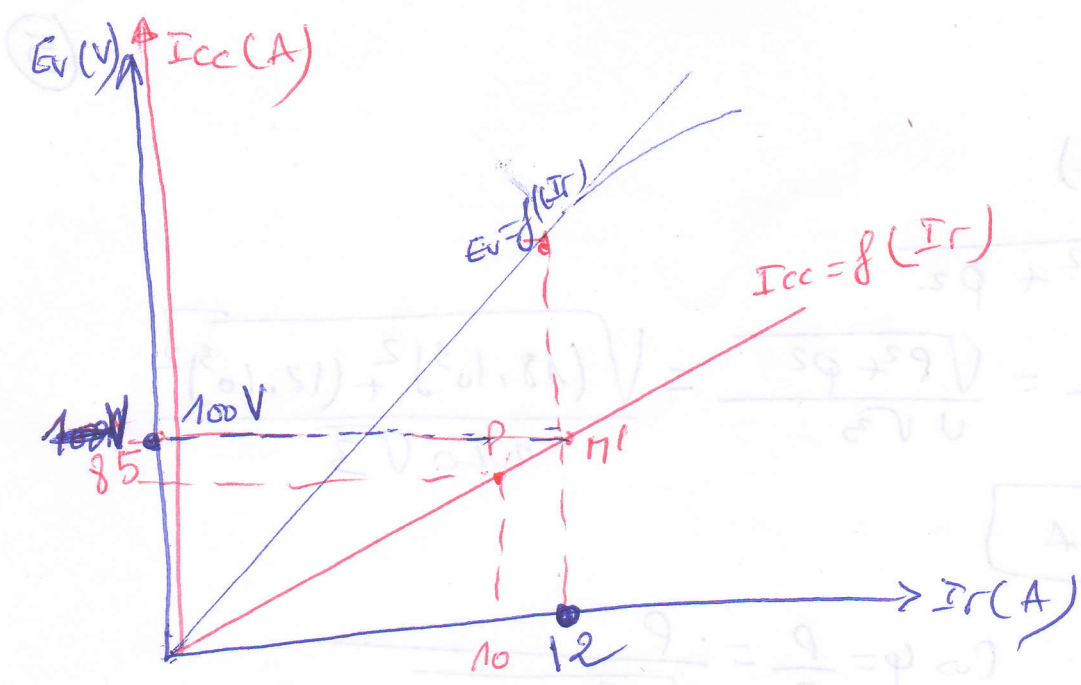 Ev(V)
Icc(A)
Ev=f(Ir)
Icc = f(Ir)
100V
85
P
M'
10
12
Ir(A)